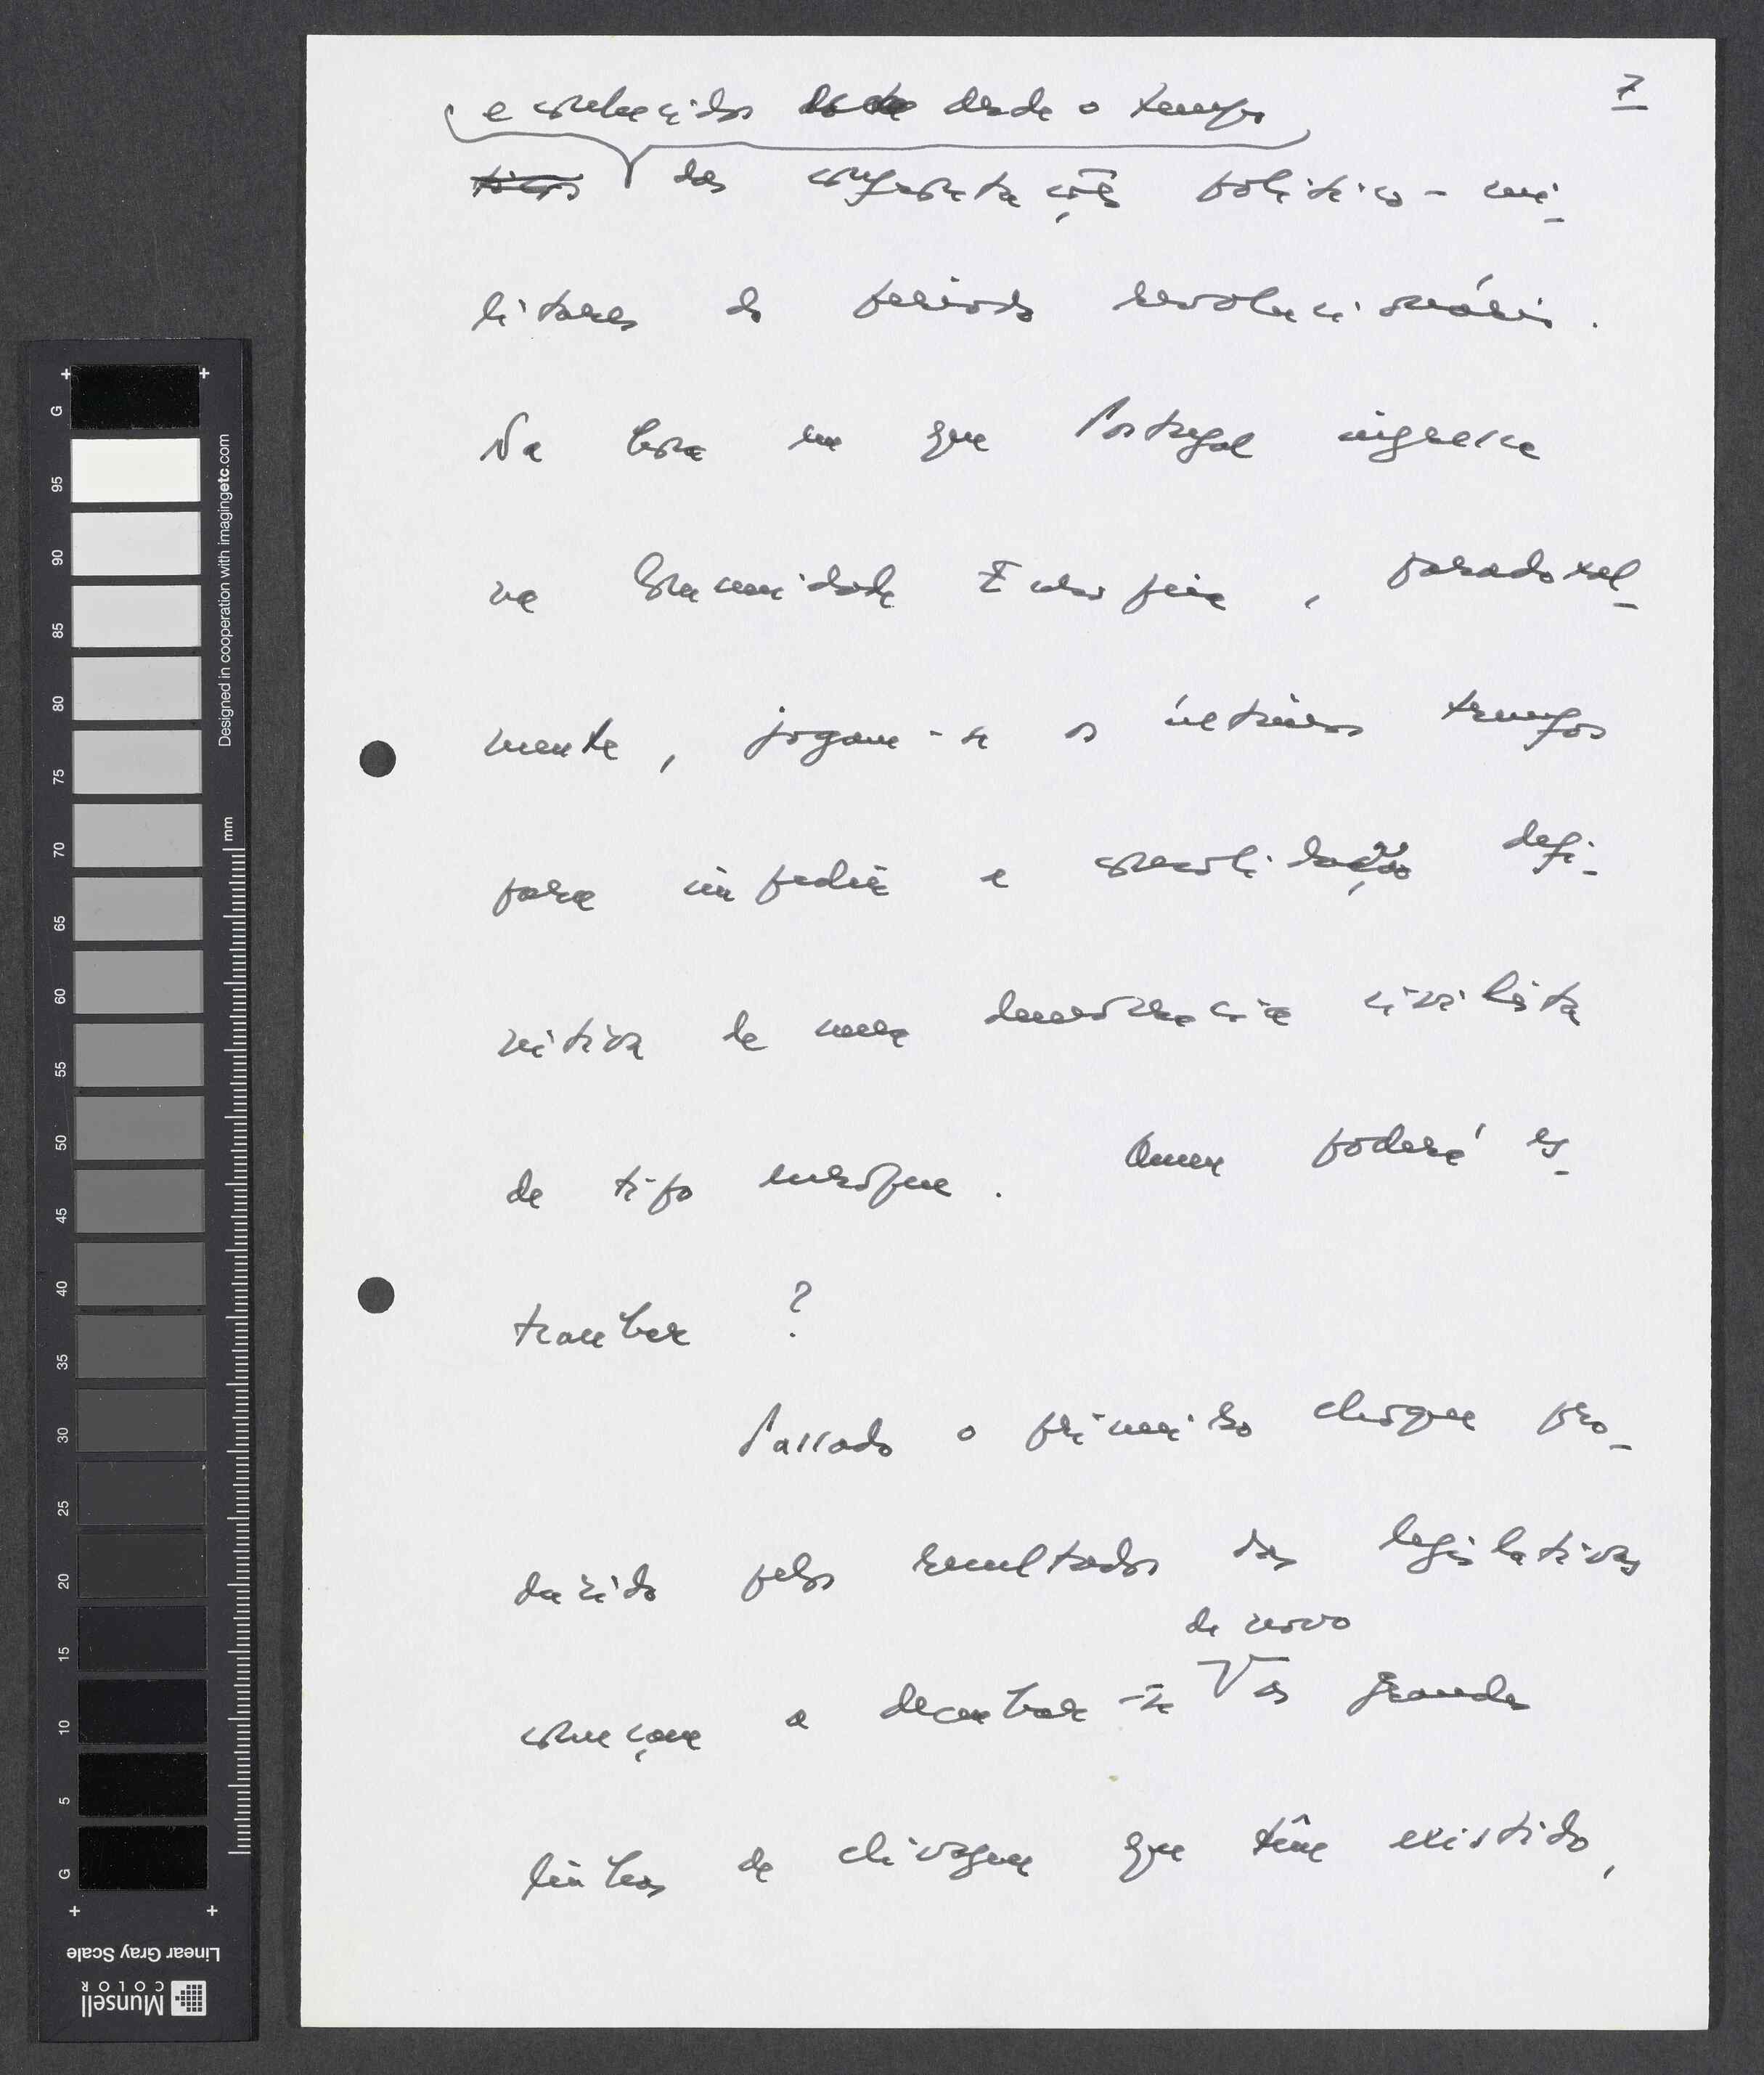 7
e conhecidos desde o tempo
das confrontações político-mi-
litares do período revolucionário.
Na hora em que Portugal ingressa
na Comunidade Europeia, paradoxal-
mente, jogam-se os últimos trunfos
para impedir a consolidação defi-
nitiva de uma democracia civilista
de tipo europeu. Quem poderá es-
tranhar?
Passado o primeiro choque pro-
duzido pelos resultados das legislativas
de novo
começam a desenhar-se as grandes
linhas de clivagem que têm existido,
G
95
90
85
80
75
70
65
60
55
50
45
40
35
30
25
20
15
10
5
G
mm
Designed in cooperation with imagingetc.com
Linear Gray Scale
Munsell
COLOR